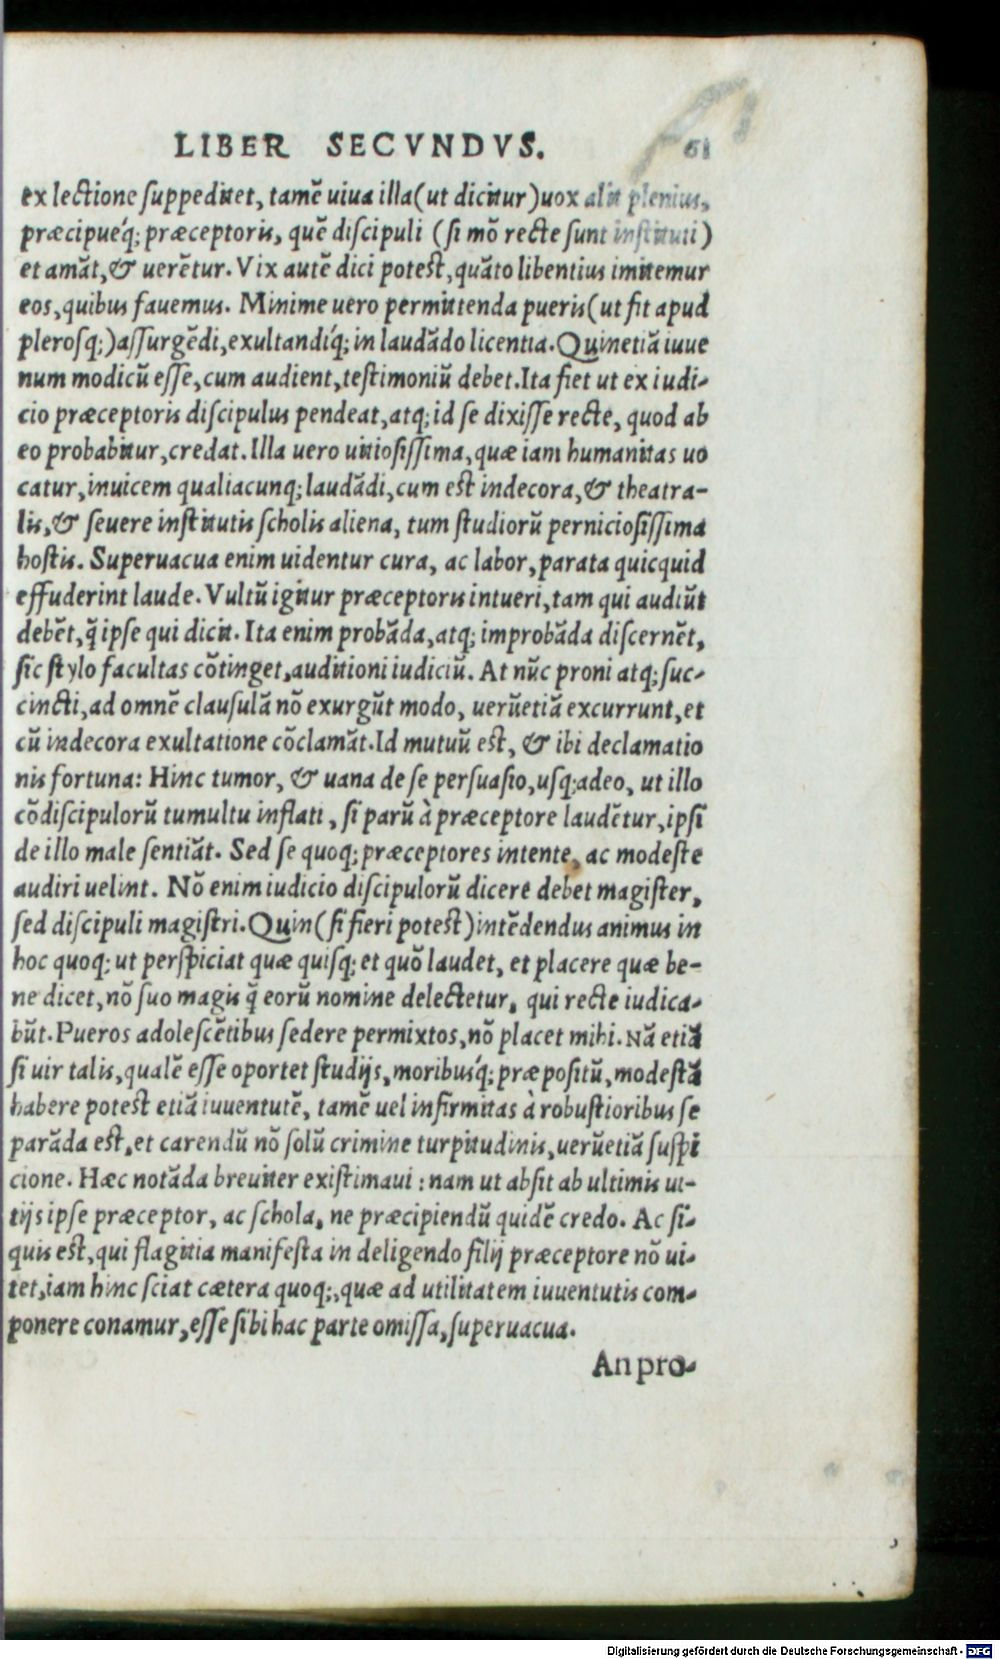 LIBER SECVNDVS. 61
ex lectione ſuppeditet, tamẽ uiua illa (ut dicitur) uox alit plenius,
præcipueq́; præceptoris, quẽ diſcipuli (ſi mõ recte ſunt inſtituti)
et amãt, & uerẽtur. Vix autẽ dici poteſt, quãto libentius imitemur
eos, quibus fauemus. Minime uero permittenda pueris (ut fit apud
pleroſq;) aſſurgẽdi, exultandiq́; in laudãdo licentia. Quinetiã iuue
num modicũ eſſe, cum audient, teſtimoniũ debet. Ita fiet ut ex iudi-
cio præceptoris diſcipulus pendeat, atq; id ſe dixiſſe recte, quod ab
eo probabitur, credat. Illa uero uitioſiſſima, quæ iam humanitas uo
catur, inuicem qualiacunq; laudãdi, cum eſt indecora, & theatra-
lis, & ſeuere inſtitutis ſcholis aliena, tum ſtudiorũ pernicioſiſſima
hoſtis. Superuacua enim uidentur cura, ac labor, parata quicquid
effuderint laude. Vultũ igitur præceptoris intueri, tam qui audiũt
debẽt, q̃ ipſe qui dicit. Ita enim probãda, atq; improbãda diſcernẽt,
ſic ſtylo facultas cõtinget, auditioni iudiciũ. At nũc proni atq; ſuc-
cincti, ad omnẽ clauſulã nõ exurgũt modo, uerũetiã excurrunt, et
cũ indecora exultatione cõclamãt. Id mutuũ eſt, & ibi declamatio
nis fortuna: Hinc tumor, & uana de ſe perſuaſio, uſq; adeo, ut illo
cõdiſcipulorũ tumultu inflati, ſi parũ à præceptore laudẽtur, ipſi
de illo male ſentiãt. Sed ſe quoq; præceptores intente, ac modeſte
audiri uelint. Nõ enim iudicio diſcipulorũ dicere debet magiſter,
ſed diſcipuli magiſtri. Quin (ſi fieri poteſt) intẽdendus animus in
hoc quoq; ut perſpiciat quæ quiſq; et quõ laudet, et placere quæ be-
ne dicet, nõ ſuo magis q̃ eorũ nomine delectetur, qui recte iudica-
bũt. Pueros adoleſcẽtibus ſedere permixtos, nõ placet mihi. Nã etiã
ſi uir talis, qualẽ eſſe oportet ſtudijs, moribuſq́; præpoſitũ, modeſtã
habere poteſt etiã iuuentutẽ, tamẽ uel infirmitas à robuſtioribus ſe
parãda eſt, et carendũ nõ ſolũ crimine turpitudinis, uerũetiã ſuſpi
cione. Hæc notãda breuiter exiſtimaui: nam ut abſit ab ultimis ui-
tijs ipſe præceptor, ac ſchola, ne præcipiendũ quidẽ credo. Ac ſi-
quis eſt, qui flagitia manifeſta in deligendo filij præceptore nõ ui-
tet, iam hinc ſciat cætera quoq;, quæ ad utilitatem iuuentutis com-
ponere conamur, eſſe ſibi hac parte omiſſa, ſuperuacua.
An pro-
Digitalisierung gefördert durch die Deutsche Forschungsgemeinschaft - DFG